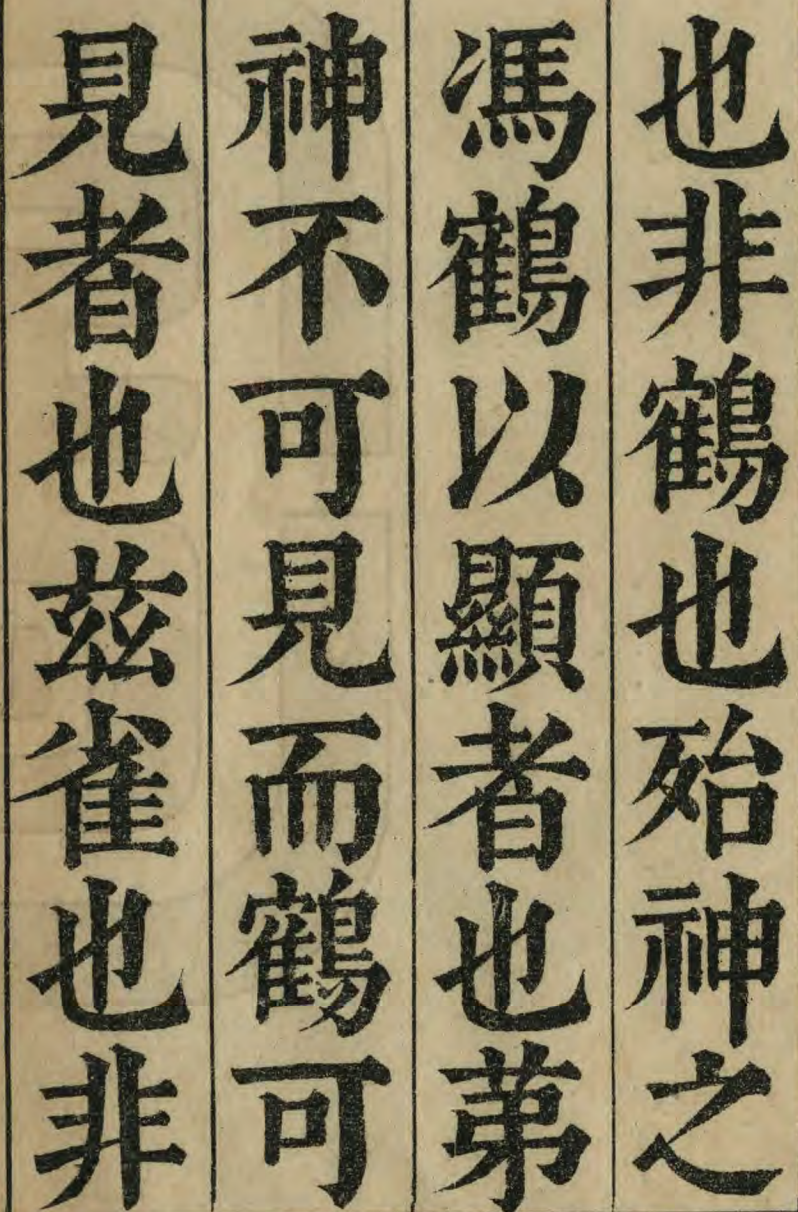 也非鶴也殆神之
馮鶴以顯者也苐
神不可見而鶴可
見者也茲雀也非